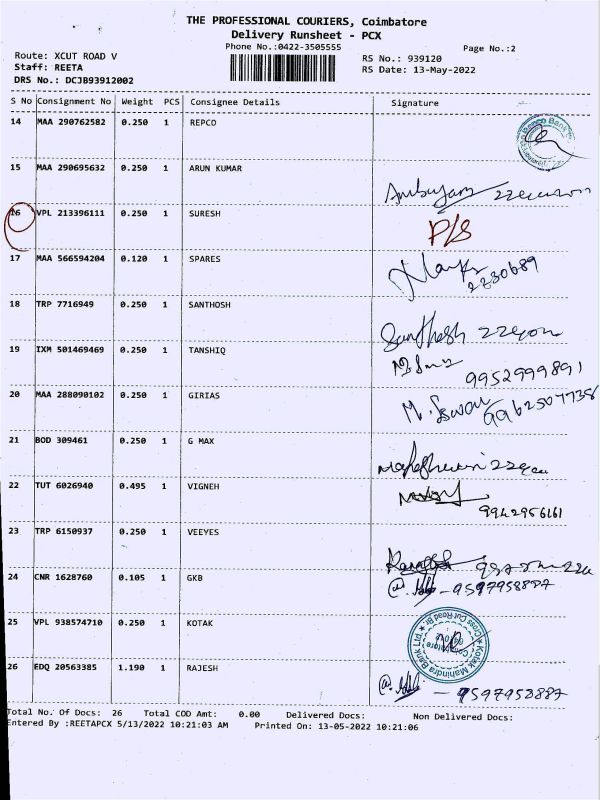 THE PROFESSIONAL COURIERS, Coimbatore
Delivery Runsheet - PCX
Phone No.:0422-3505555
Page No.:2
Route: XCUT ROAD V
RS No.: 939120
Staff: REETA
RS Date: 13-May-2022
DRS No.: DCJB93912002
S No Consignment No Weight PCS Consignee Details Signature
14 MAA 290762582 0.250 1 REPCO
15 MAA 290695632 0.250 1 ARUN KUMAR
16 VPL 213396111 0.250 1 SURESH P/S
17 MAA 566594204 0.120 1 SPARES 2230689
18 TRP 7716949 0.250 1 SANTHOSH Santhosh
19 IXM 501469469 0.250 1 TANSHIQ 9952999891
20 MAA 288090102 0.250 1 GIRIAS 9962507738
21 BOD 309461 0.250 1 G MAX
22 TUT 6026940 0.495 1 VIGNEH 9942956161
23 TRP 6150937 0.250 1 VEEYES
24 CNR 1628760 0.105 1 GKB 9597958887
25 VPL 938574710 0.250 1 KOTAK Kotak Mahindra Bank Ltd. Cross Cut Road Br. Coimbatore
26 EDQ 20563385 1.190 1 RAJESH 9597958887
Total No. Of Docs: 26 Total COD Amt: 0.00 Delivered Docs: Non Delivered Docs:
Entered By :REETAPCX 5/13/2022 10:21:03 AM Printed On: 13-05-2022 10:21:06